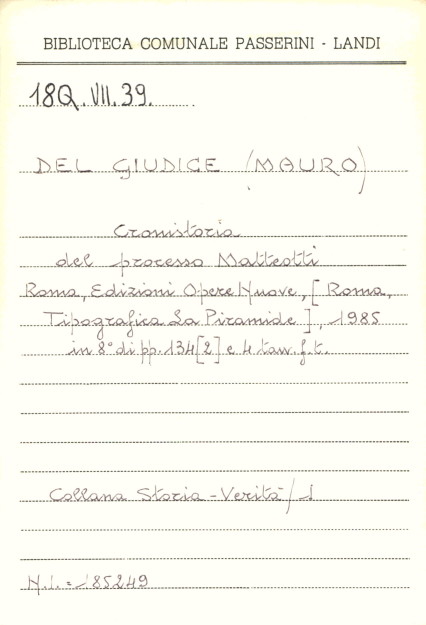 BIBLIOTECA COMUNALE PASSERINI - LANDI
18Q. VII. 39.
DEL GIUDICE (MAURO)
Cronistoria
del processo Matteotti
Roma, Edizioni Opere Nuove, [Roma,
Tipografica La Piramide], 1985
in 8° di pp. 134[2] e 4 tav. f.t.
Collana Storia - Verità / 1
N.I. = 185249